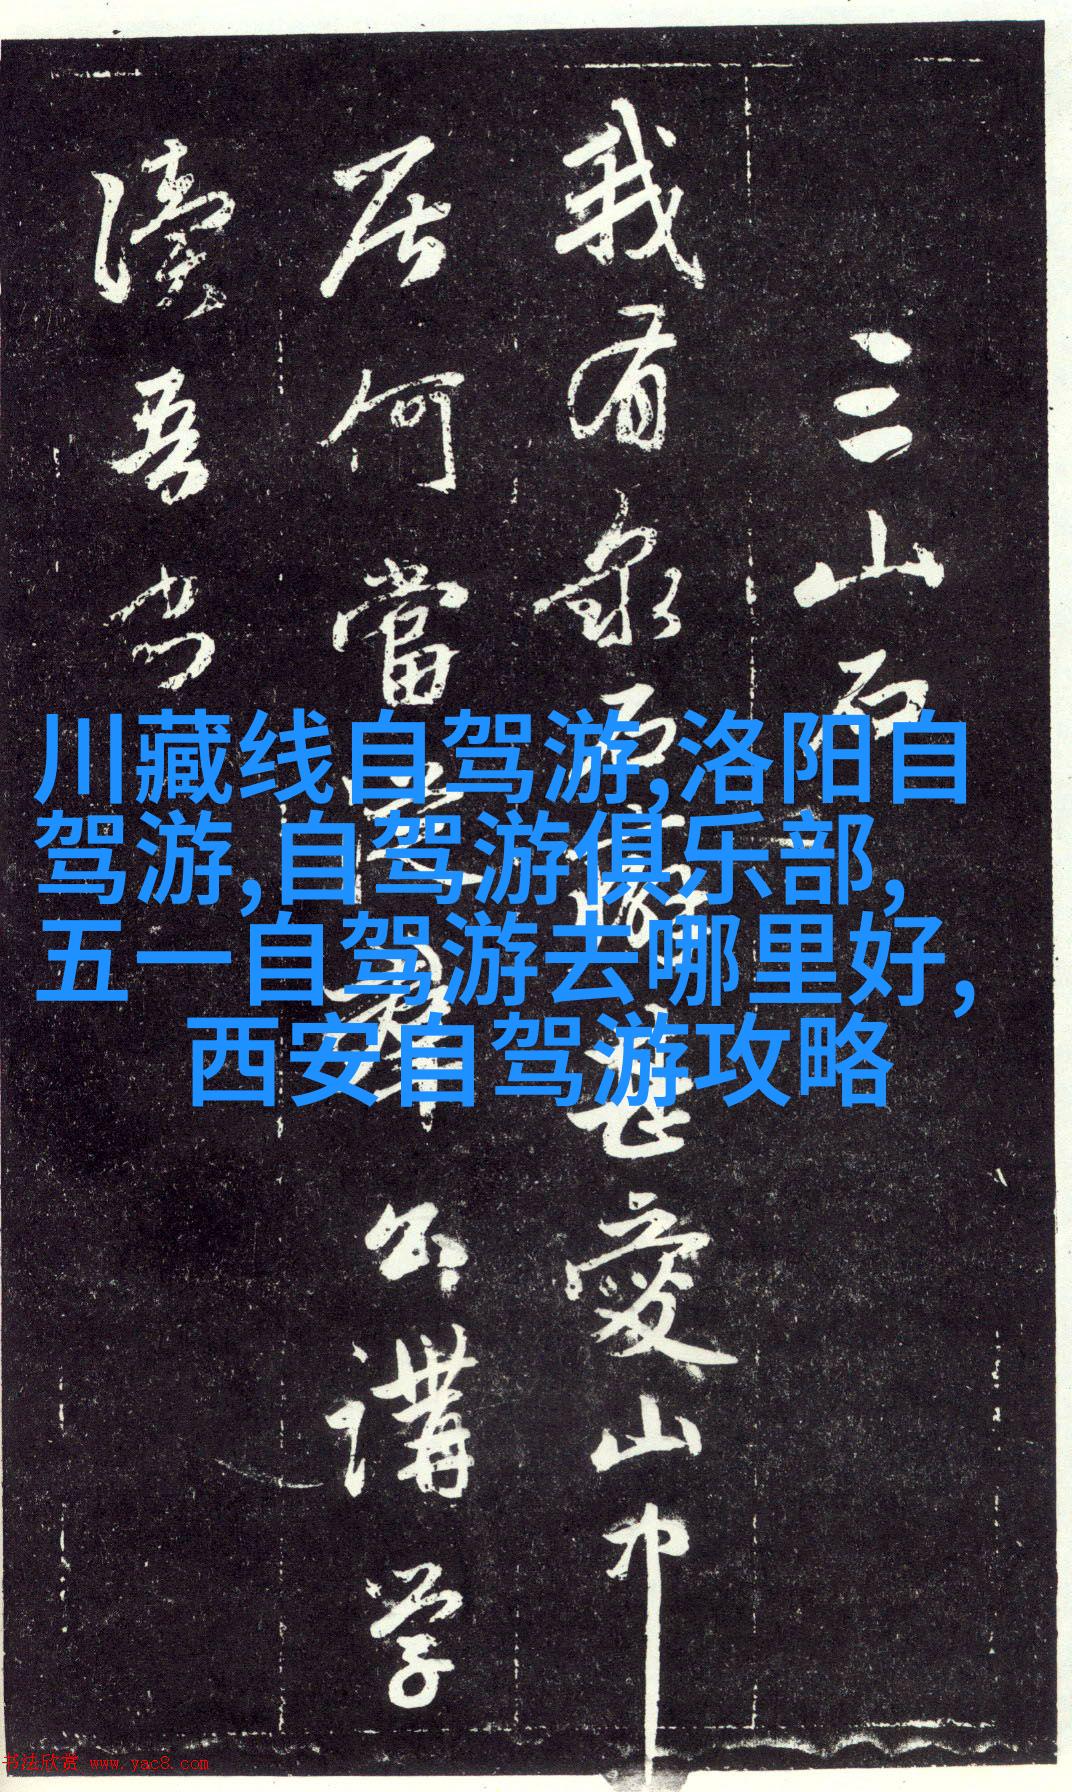 三山石
我有泉石癖甚愛山中
居何當從群公講学
讀吾书
川藏线自驾游,洛阳自
驾游,自驾游俱乐部,
五一自驾游去哪里好,
西安自驾游攻略
书法欣赏 www.yac8.com